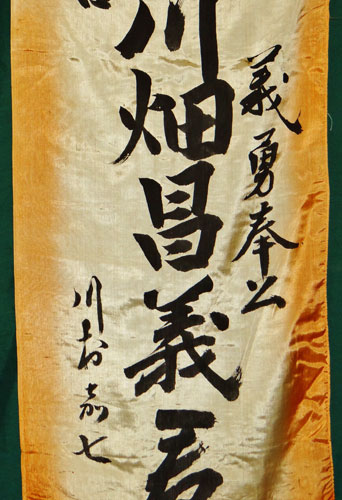 義勇奉公
川畑昌義君
川村嘉七